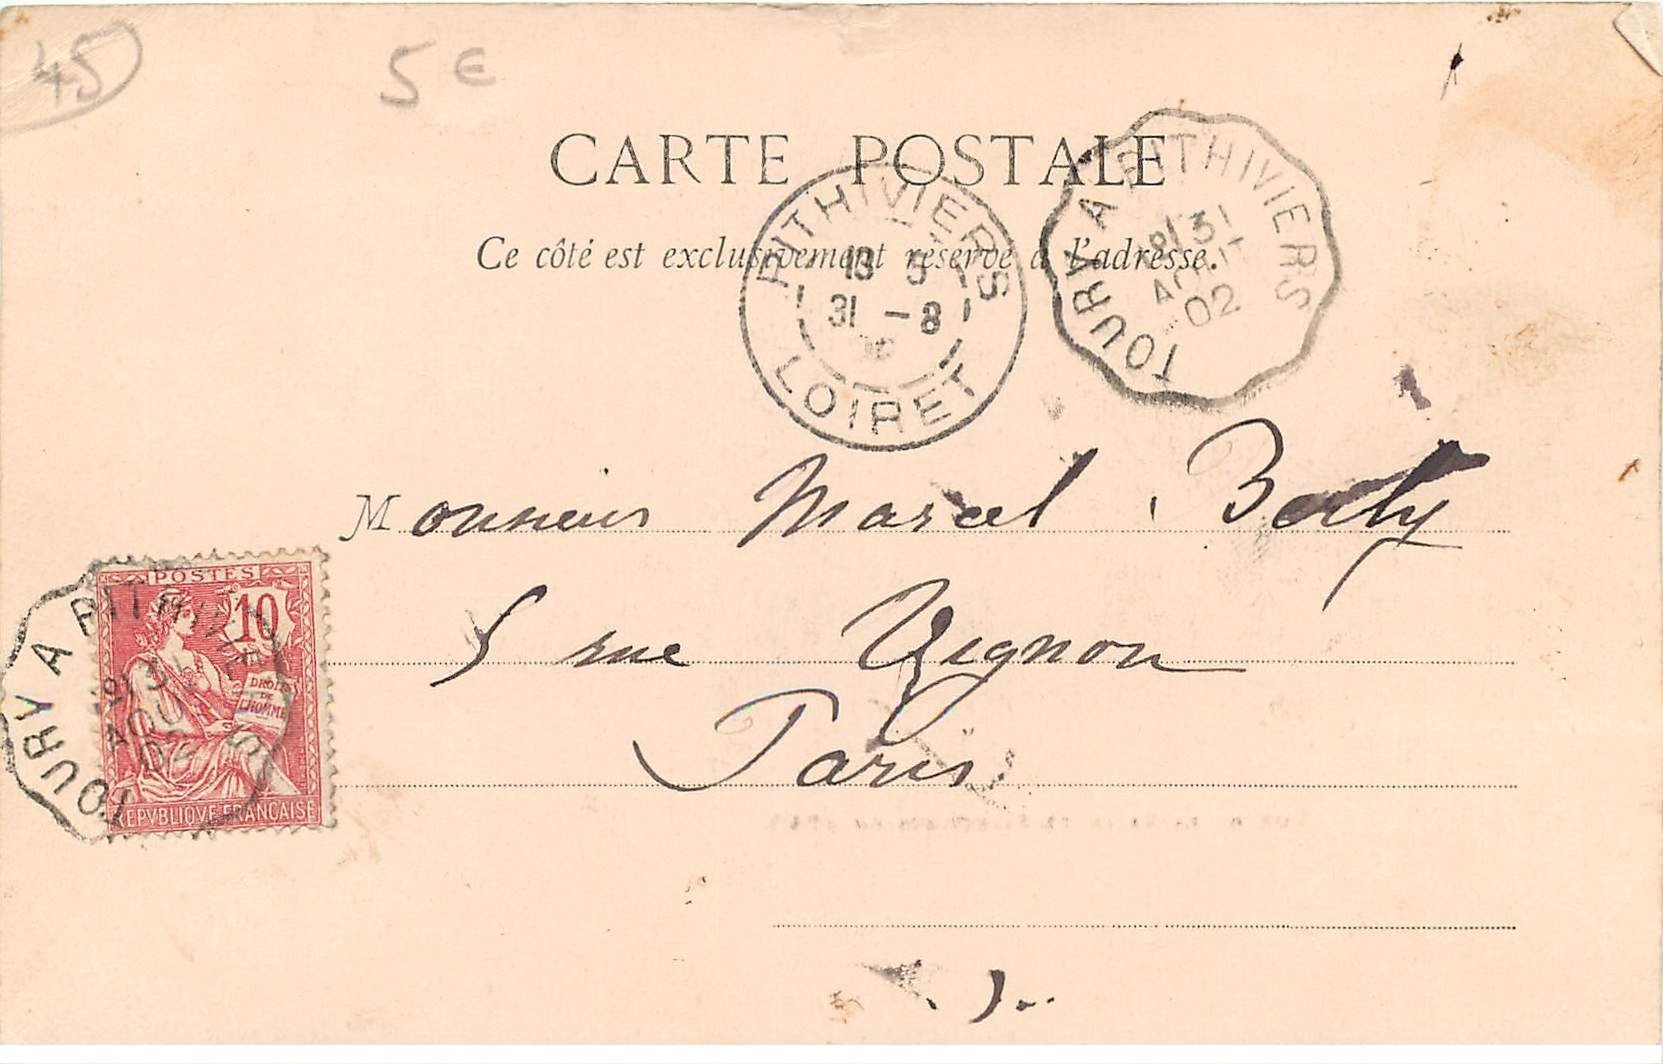 45
5 €
CARTE POSTALE
Ce côté est exclusivement réservé à l'adresse.
PITHIVIERS
18 5
31 -8
LOIRET
TOURY A PITHIVIERS
31
AOUT
02
Monsieur Marcel
5 rue Vignon
Paris
POSTES
10
DROITS
DE
L'HOMME
REPVBLIQVE FRANCAISE
TOURY A PITHIVIERS
31
AOUT
02